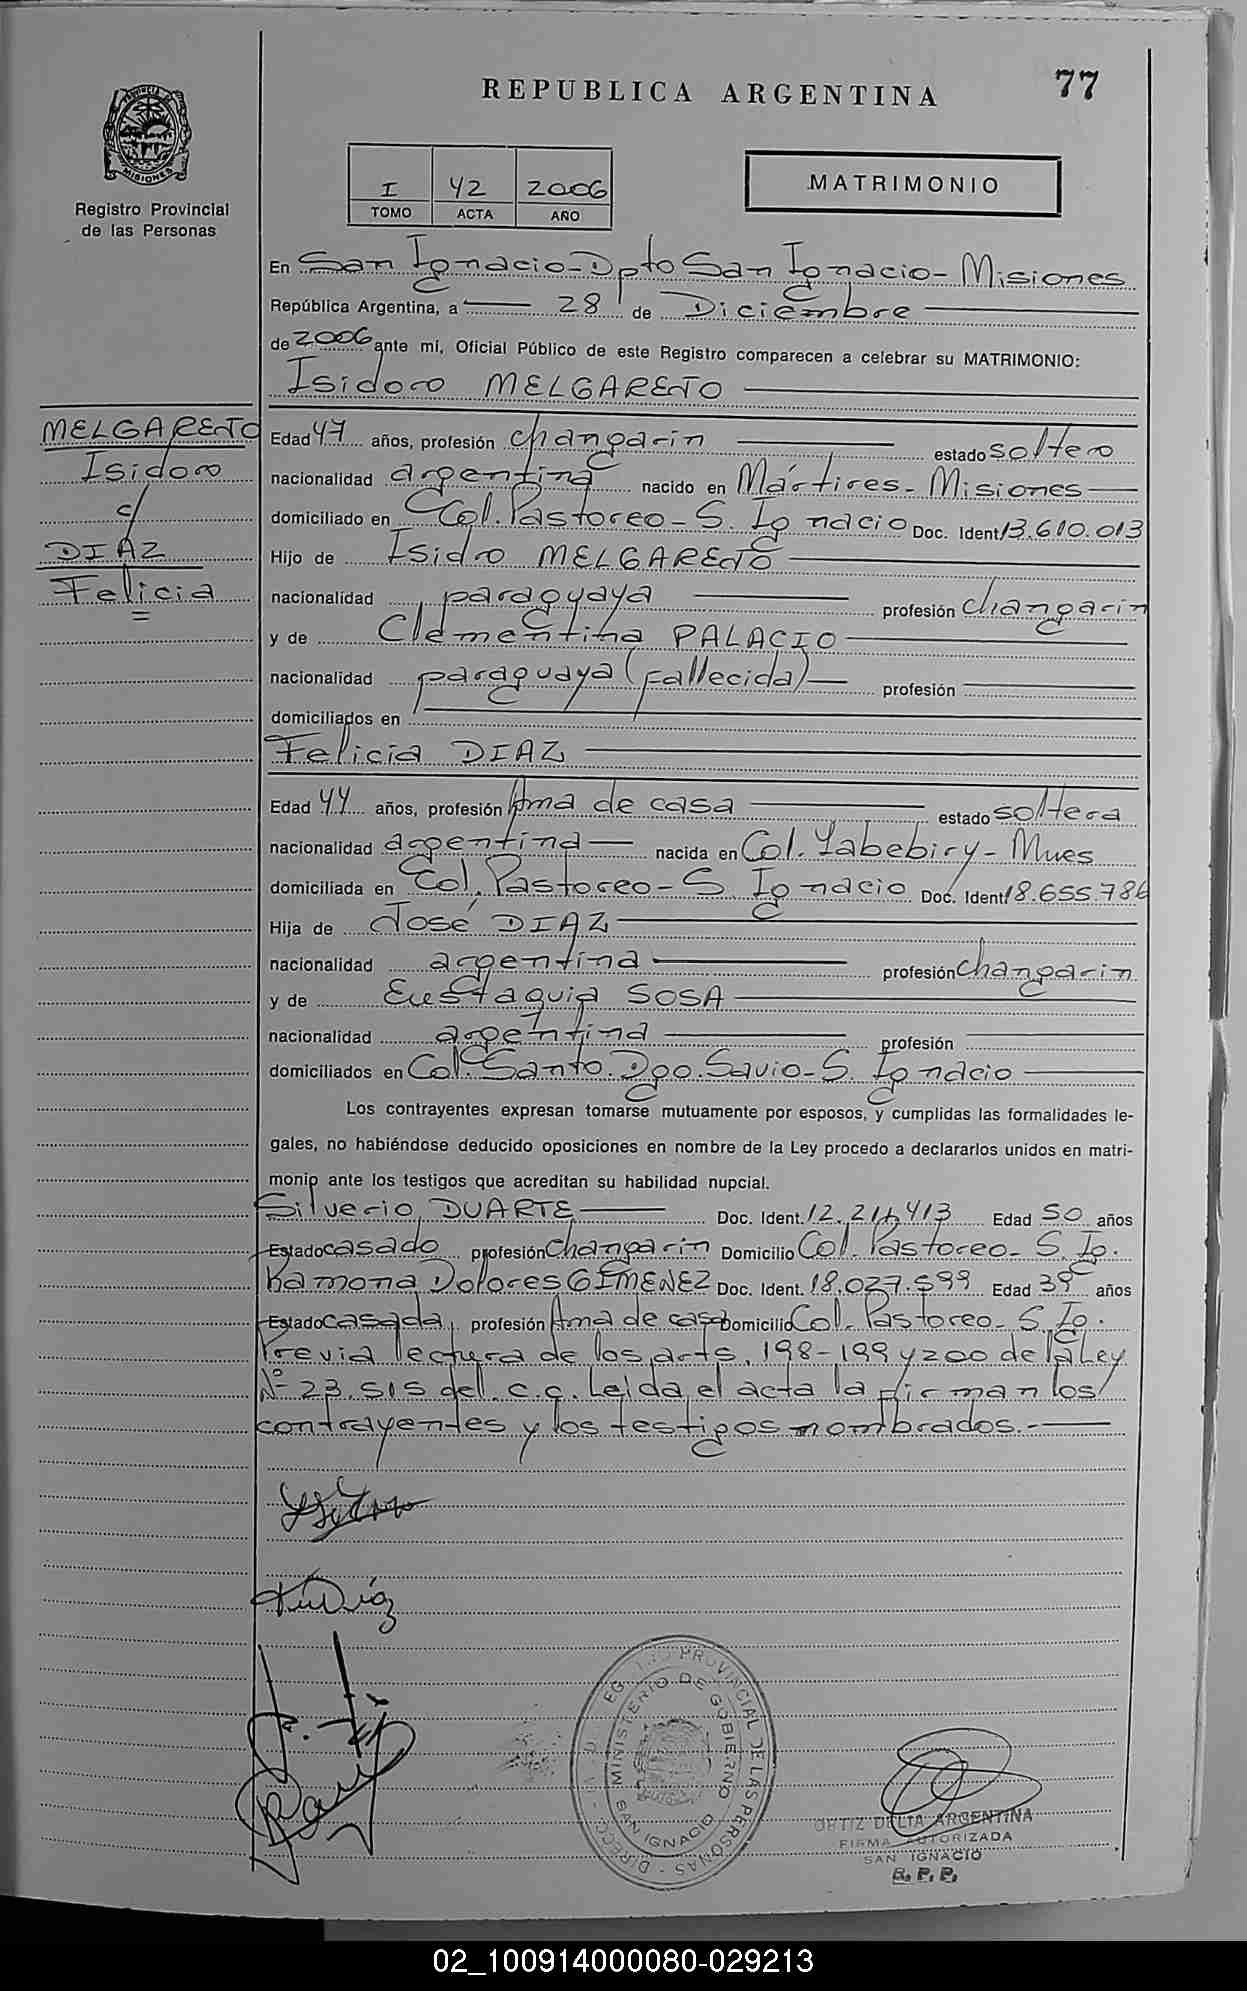 77
REPUBLICA ARGENTINA
PROVINCIA DE
MISIONES
Registro Provincial
de las Personas
I 42 2006
TOMO ACTA AÑO
MATRIMONIO
En San Ignacio-Dpto San Ignacio- Misiones
República Argentina, a 28 de Diciembre
de 2006 ante mi, Oficial Público de este Registro comparecen a celebrar su MATRIMONIO:
Isidoro MELGAREJO
MELGAREJO
Isidoro
c/
DIAZ
Felicia
Edad 47 años, profesión changarin estado soltero
nacionalidad argentina nacido en Mártires- Misiones
domiciliado en Col. Pastoreo- S. Ignacio Doc. Ident 13.610.013
Hijo de Isidro MELGAREJO
nacionalidad paraguaya profesión changarin
y de Clementina PALACIO
nacionalidad paraguaya (fallecida) profesión
domiciliados en
Felicia DIAZ
Edad 44 años, profesión Ama de casa estado soltera
nacionalidad argentina nacida en Col. Yabebiry- Mnes
domiciliada en Col. Pastoreo- S. Ignacio Doc. Ident 18.655.786
Hija de José DIAZ
nacionalidad argentina profesión changarin
y de Eustaquia SOSA
nacionalidad argentina profesión
domiciliados en Col. Santo. Dgo. Savio- S. Ignacio
Los contrayentes expresan tomarse mutuamente por esposos, y cumplidas las formalidades le-
gales, no habiéndose deducido oposiciones en nombre de la Ley procedo a declararlos unidos en matri-
monio ante los testigos que acreditan su habilidad nupcial.
Silverio DUARTE Doc. Ident. 12. 413 Edad 50 años
Estado casado profesión changarin Domicilio Col. Pastoreo- S. Ig.
Ramona Dolores GIMENEZ Doc. Ident. 18.027.599 Edad 39 años
Estado casada profesión Ama de casa Domicilio Col. Pastoreo- S. Ig.
Previa lectura de los arts. 198-199 y 200 de la Ley
Nº 23.515 del. c.c. Leida el acta la firman los
contrayentes y los testigos nombrados.-
Díaz
PROVINCIAL DE LAS PERSONAS
MINISTERIO DE GOBIERNO
SAN IGNACIO
ORTIZ DELIA ARGENTINA
FIRMA AUTORIZADA
SAN IGNACIO
R. P. P.
02_100914000080-029213